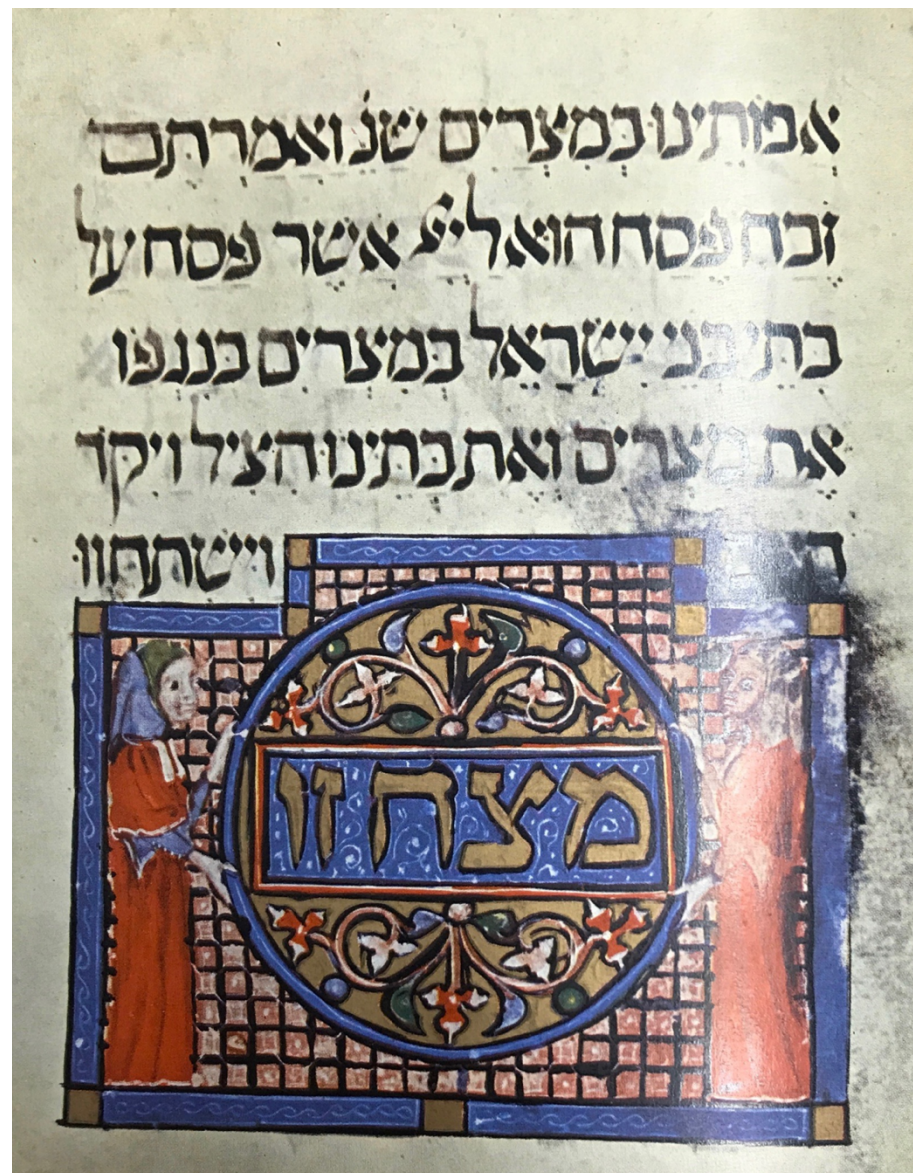 אבותינו במצרים שנ ואמרתם
זבח פסח הוא ליי אשר פסח על
בתי בני ישראל במצרים בנגפו
את מצרים ואת בתינו הציל ויקד
וישתחוו
מצה זו